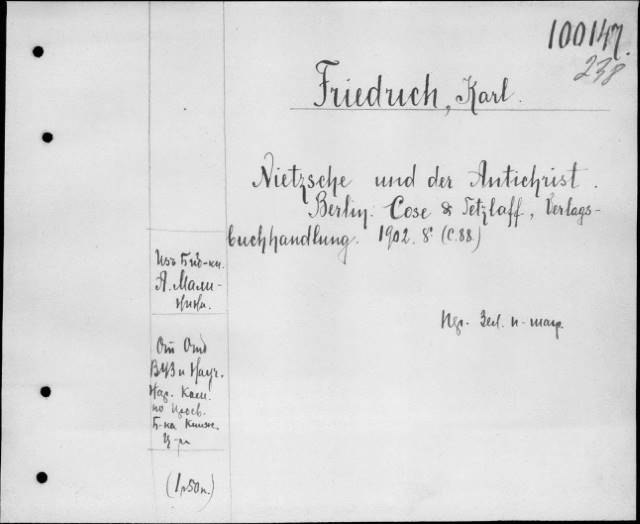 100147.
238
Friedrich, Karl.
Nietzsche und der Antichrist.
Berlin. Cose & Tetzlaff, Verlags-
buchhandlung. 1902. 8° (С.88.)
Изъ Биб-ки.
А. Мали-
нина.
От Отд
ВУЗ и Науч.
Нар. Ком.
по Просв.
Б-ка Книж.
(1р50к.)